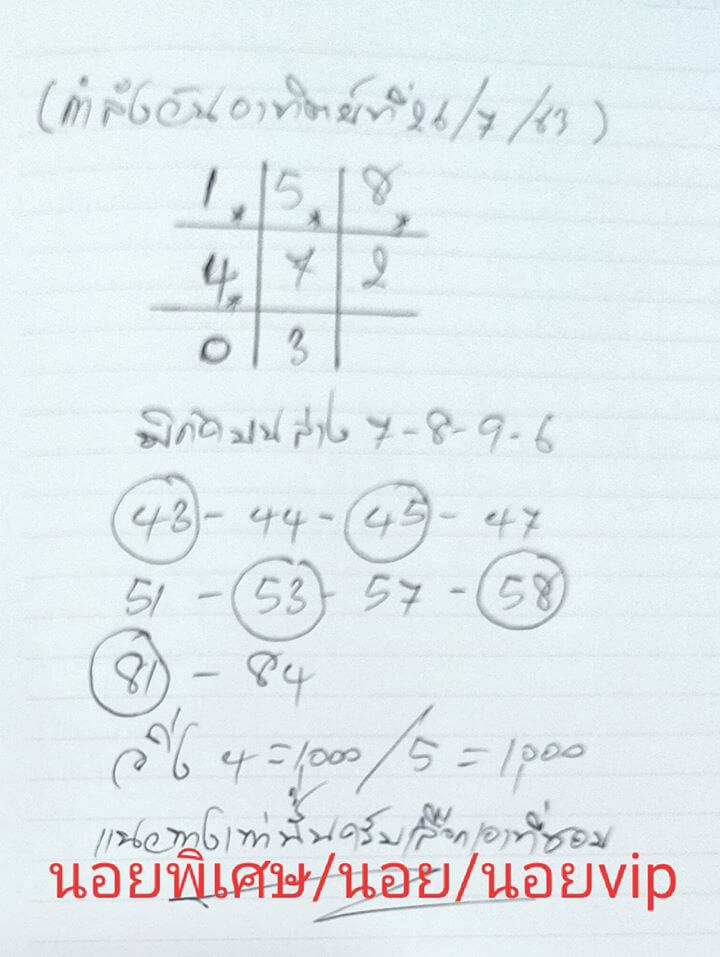 (กำลังวันอาทิตย์ที่26/7/63)
1 5 8
4 7 2
0 3
พิกัดบนล่าง 7-8-9-6
43 - 44 - 45 - 47
51 - 53 - 57 - 58
81 - 84
วิ่ง 4=1,000/5=1,000
แนวทางเท่านั้นครับเลือกเอาที่ชอบ
นอยพิเศษ/นอย/นอยvip